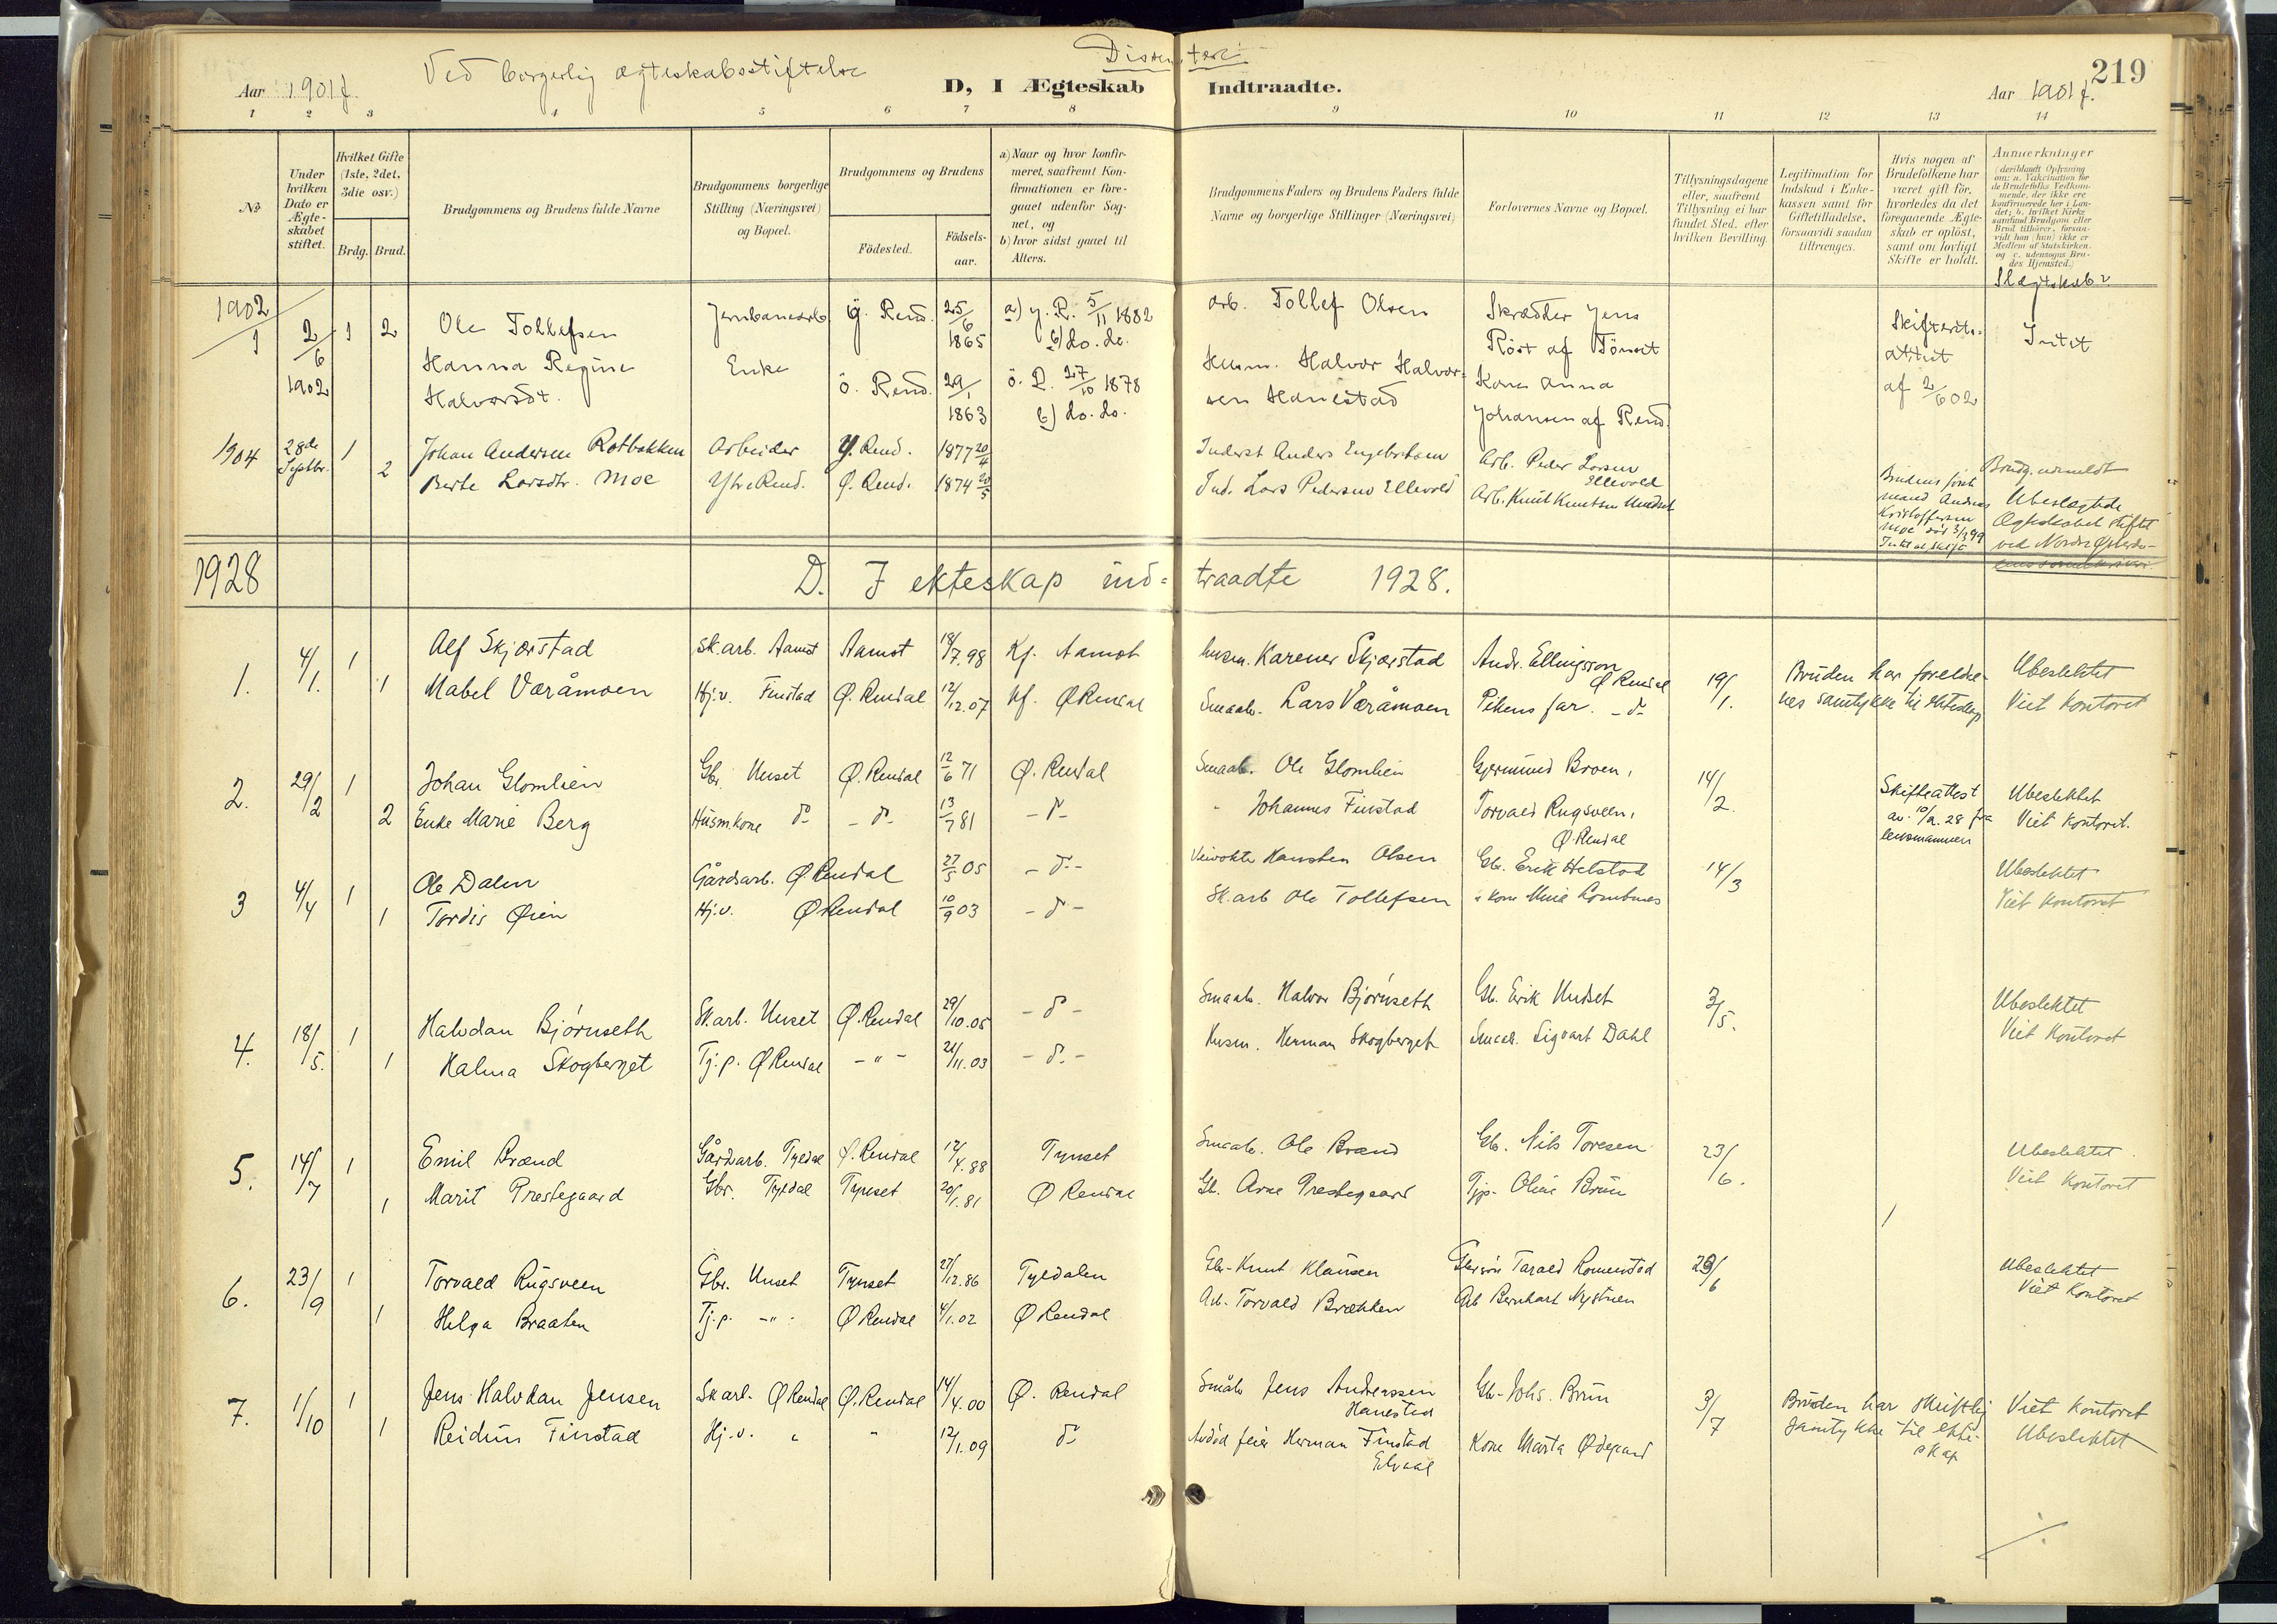 Dissentere
Ved borgerlig ægteskabsstiftelse
D, I Ægteskab Indtraadte.
219
Aar 1901 f.
Aar 1901 f.
1 2 3 4 5 6 7 8 9 10 11 12 13 14
No
Under hvilken Dato er Ægteskabet stiftet.
Hvilket Gifte (1ste, 2det, 3die osv.)
Brdg. Brud.
Brudgommens og Brudens fulde Navne
Brudgommens borgerlige Stilling (Næringsvei) og Bopæl.
Brudgommens og Brudens
Födested.
Födsels-aar.
a) Naar og hvor konfirmeret, saafremt Konfirmationen er foregaaet udenfor Sognet, og
b) hvor sidst gaaet til Alters.
Brudgommens Faders og Brudens Faders fulde Navne og borgerlige Stillinger (Næringsvei)
Forlovernes Navne og Bopæl.
Tillysningsdagene eller, saafremt Tillysning ei har fundet Sted, efter hvilken Bevilling.
Legitimation for Indskud i Enkekassen samt for Giftetilladelse, forsaavidt saadan tiltrænges.
Hvis nogen af Brudefolkene har været gift för, hvorledes da det foregaaende Ægteskab er oplöst, samt om lovligt Skifte er holdt.
Anmærkninger (deriblandt Oplysning om: a. Vakcination for de Brudefolks Vedkommende, der ikke ere konfirmerede her i Landet; b. hvilket Kirkesamfund Brudgom eller Brud tilhörer, forsaavidt han (hun) ikke er Medlem af Statskirken. og c. udensogns Brudes Hjemsted.)
Slægtskab?
1902
1 2/6 1902 1 2 Ole Tollefsen Jernbanearb. y. Rend. 25/6 1865 a) y. R. 5/11 1882 b) do. do. Arb. Tollef Olsen Skrædder Jens Röst af Tönset Intet
Hanna Regine Halvorsdt. Enke ö. Rend. 29/1 1863 ö. R. 27/10 1878 b) do. do. Husm. Halvor Halvorsen Hanestad Kone Anna Johansen af Rend.
af 2/6 02
1904 28de Septbr. 1 Johan Andersen Rotbakken Arbeider Y. Rend. 1877 20/4 Inderst Anders Engebretsen Arb. Peder Larsen Ellevold
2 Berte Larsdtr. Moe Ytre Rend. Ø. Rend. 1874 20/5 Ind. Lars Pedersen Ellevold Arb. Knut Knutsen Undset
Brudens först mand Andreas Kristoffersen Moe död 3/3 99
Brudg. udmeldt
Ubeslægtede
Ægteskabet stiftet
1928 D. I ekteskap ind=traadte 1928.
1. 4/1. 1 Alf Skjærstad sk.arb. Aamot Aamot 18/7.98 Kf. Aamot husm. Karener Skjærstad Andr. Ellingsson Ø Rendal 19/1. Bruden har foreldrenes samtykke til ekteskap Ubeslektet
1 Mabel Væråmoen Hj.v. Finstad Ø. Rendal 12/12.07 Kf. Ø Rendal Smaab. Lars Væråmoen Pikens far. - do - Viet kontoret
2. 29/2 1 Johan Glomlien Gbr. Unset Ø. Rendal 12/6 71 Ø. Rendal Smaab. Ole Glomlien Gjermund Broen, 14/2. Skifteattest Ubeslektet
2 Enke Marie Berg Husm.kone do - do - 13/7 81 - do - " Johannes Finstad Torvald Rugsveen, Ø. Rendal fra lensmannen Viet kontoret.
3 4/4 1 Ole Dalen Gårdsarb. Ø. Rendal 27/5 05 - do - Veivokter Karsten Olsen Gbr. Erik Helstad 14/3 Ubeslektet
1 Tordis Øien Hj.v. Ø Rendal 10/9 03 - do - Sk.arb Ole Tollefsen Viet kontoret
4. 18/5. 1 Halvdan Bjørnseth Sk.arb. Unset Ø. Rendal 29/10.05 - do - Smaab. Halvor Bjørnseth Gb. Erik Undset 3/5. Ubeslektet
1 Halma Skogberget Tj.p. Ø Rendal - " - 21/11.03 - do - Husm. Herman Skogberget Smaab. Sigvart Dahl Viet kontoret
5. 14/7 1 Emil Brænd Gårdarb. Tyldal Ø. Rendal 12/4.88 Tynset Smaab. Ole Brænd Gb. Nils Toresen 23/6. Ubeslektet.
1 Marit Prestegaard Gbr. Tyldal Tynset 20/1.81 Ø Rendal Gb. Arne Prestegaard Tjp. Oline Brun Viet kontoret
6. 23/9 1 Torvald Rugsveen Gbr. Unset Tynset 27/12.86 Tyldalen Gbr. Knut Klausen Tarald Romenstad Ubeslektet
1 Helga Braaten Tj.p. - " - Ø Rendal 4/1.02 Ø Rendal Arb. Torvald Brækken Arb Bernhart Nystuen Viet kontoret
7. 1/10 1 Jens Halvdan Jensen Sk arb. Ø Rendal Ø. Rendal 14/4.00 Ø. Rendal Småb Jens Andreassen Hanestad Gb. Johs. Brun 3/7 Bruden har skriftlig samtykke til ekteskap Viet kontoret
1 Reidun Finstad Hj.v. " " 12/1.09 do Avdød feier Herman Finstad Elvaal Kone Marta Ødegaard Ubeslektet